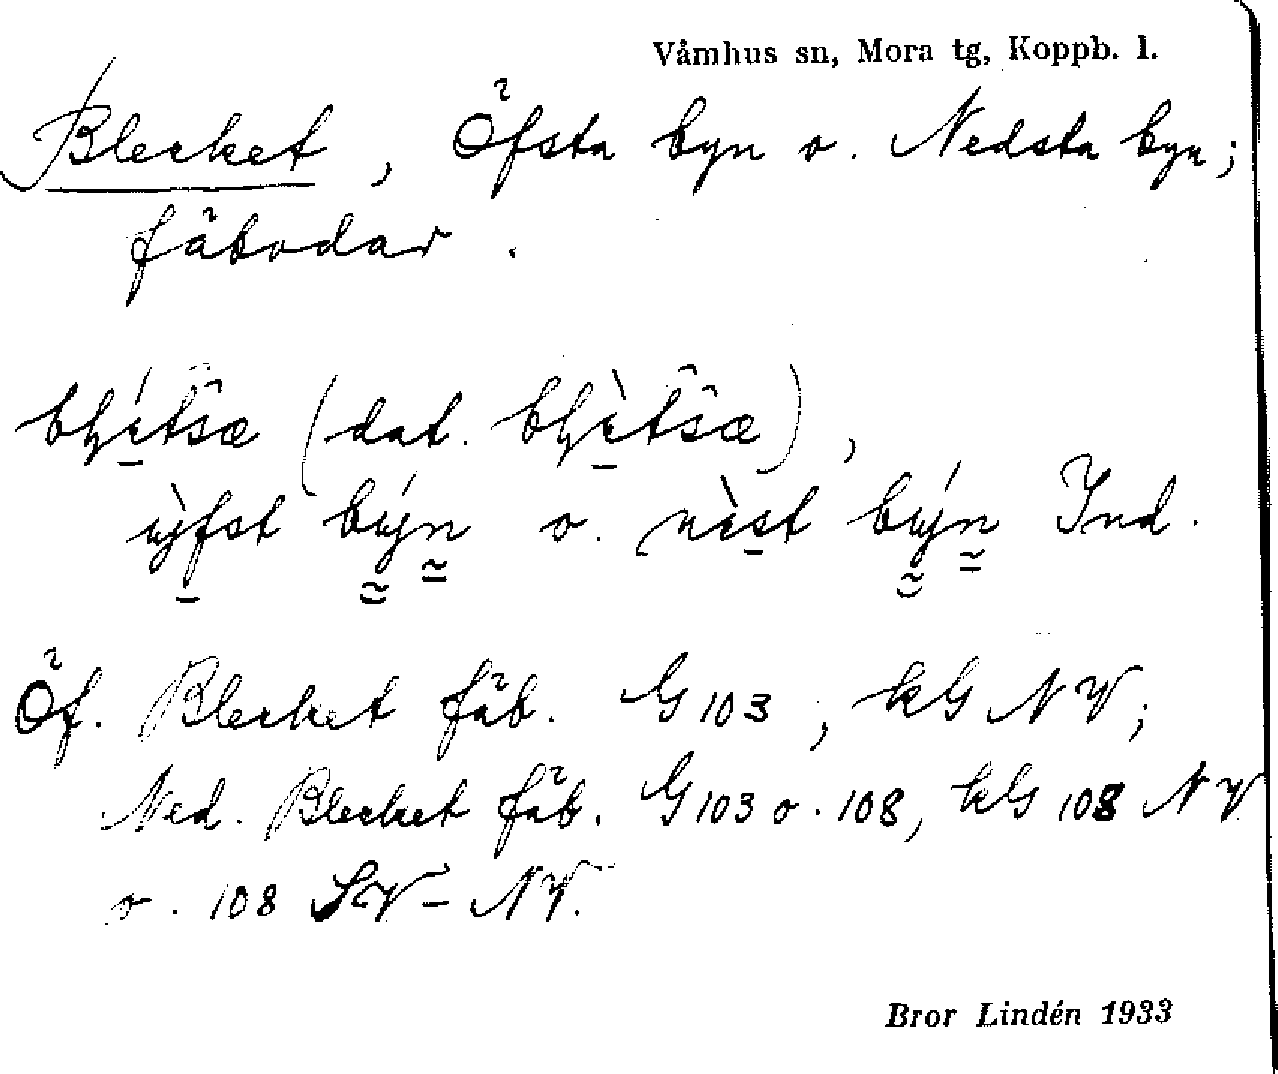 Våmhus sn, Mora tg, Koppb. l.
Blecket, Öfsta byn o. Nedsta byn;
fäbodar.
(dat.
o. Ind.
Öf. Blecket fäb. G 103; kG NV;
Ned. Blecket fäb. G 103 o. 108, kG 108 NV
o. 108 SV–NV.
Bror Lindén 1933